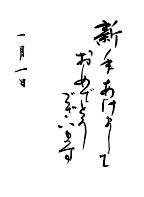 新年あけまして
おめでとう
ございます
一月一日